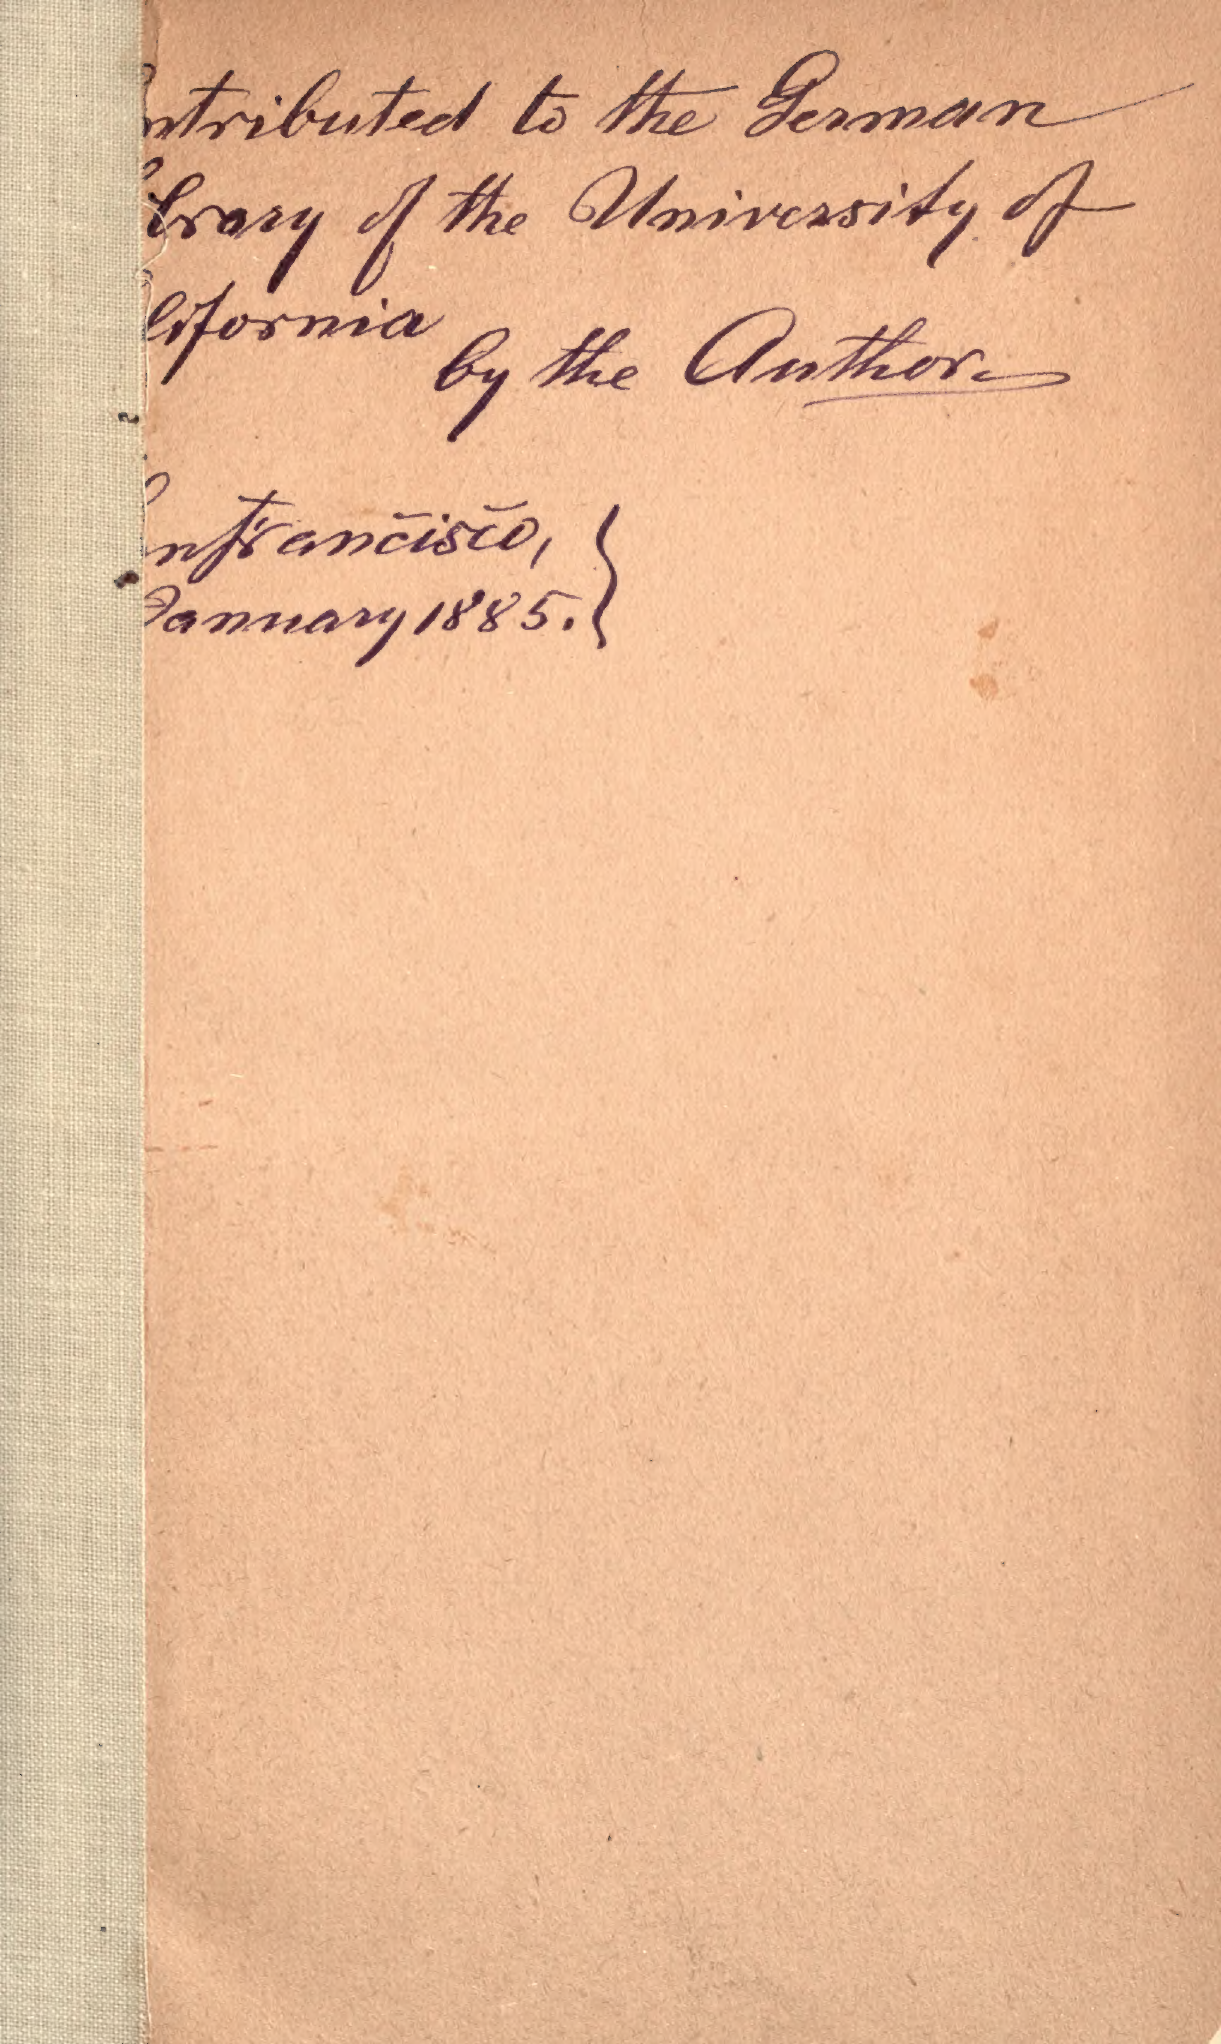 ntributed to the German
ibrary of the University of
lifornia
by the Author.
anfrancisco,
January 1885.